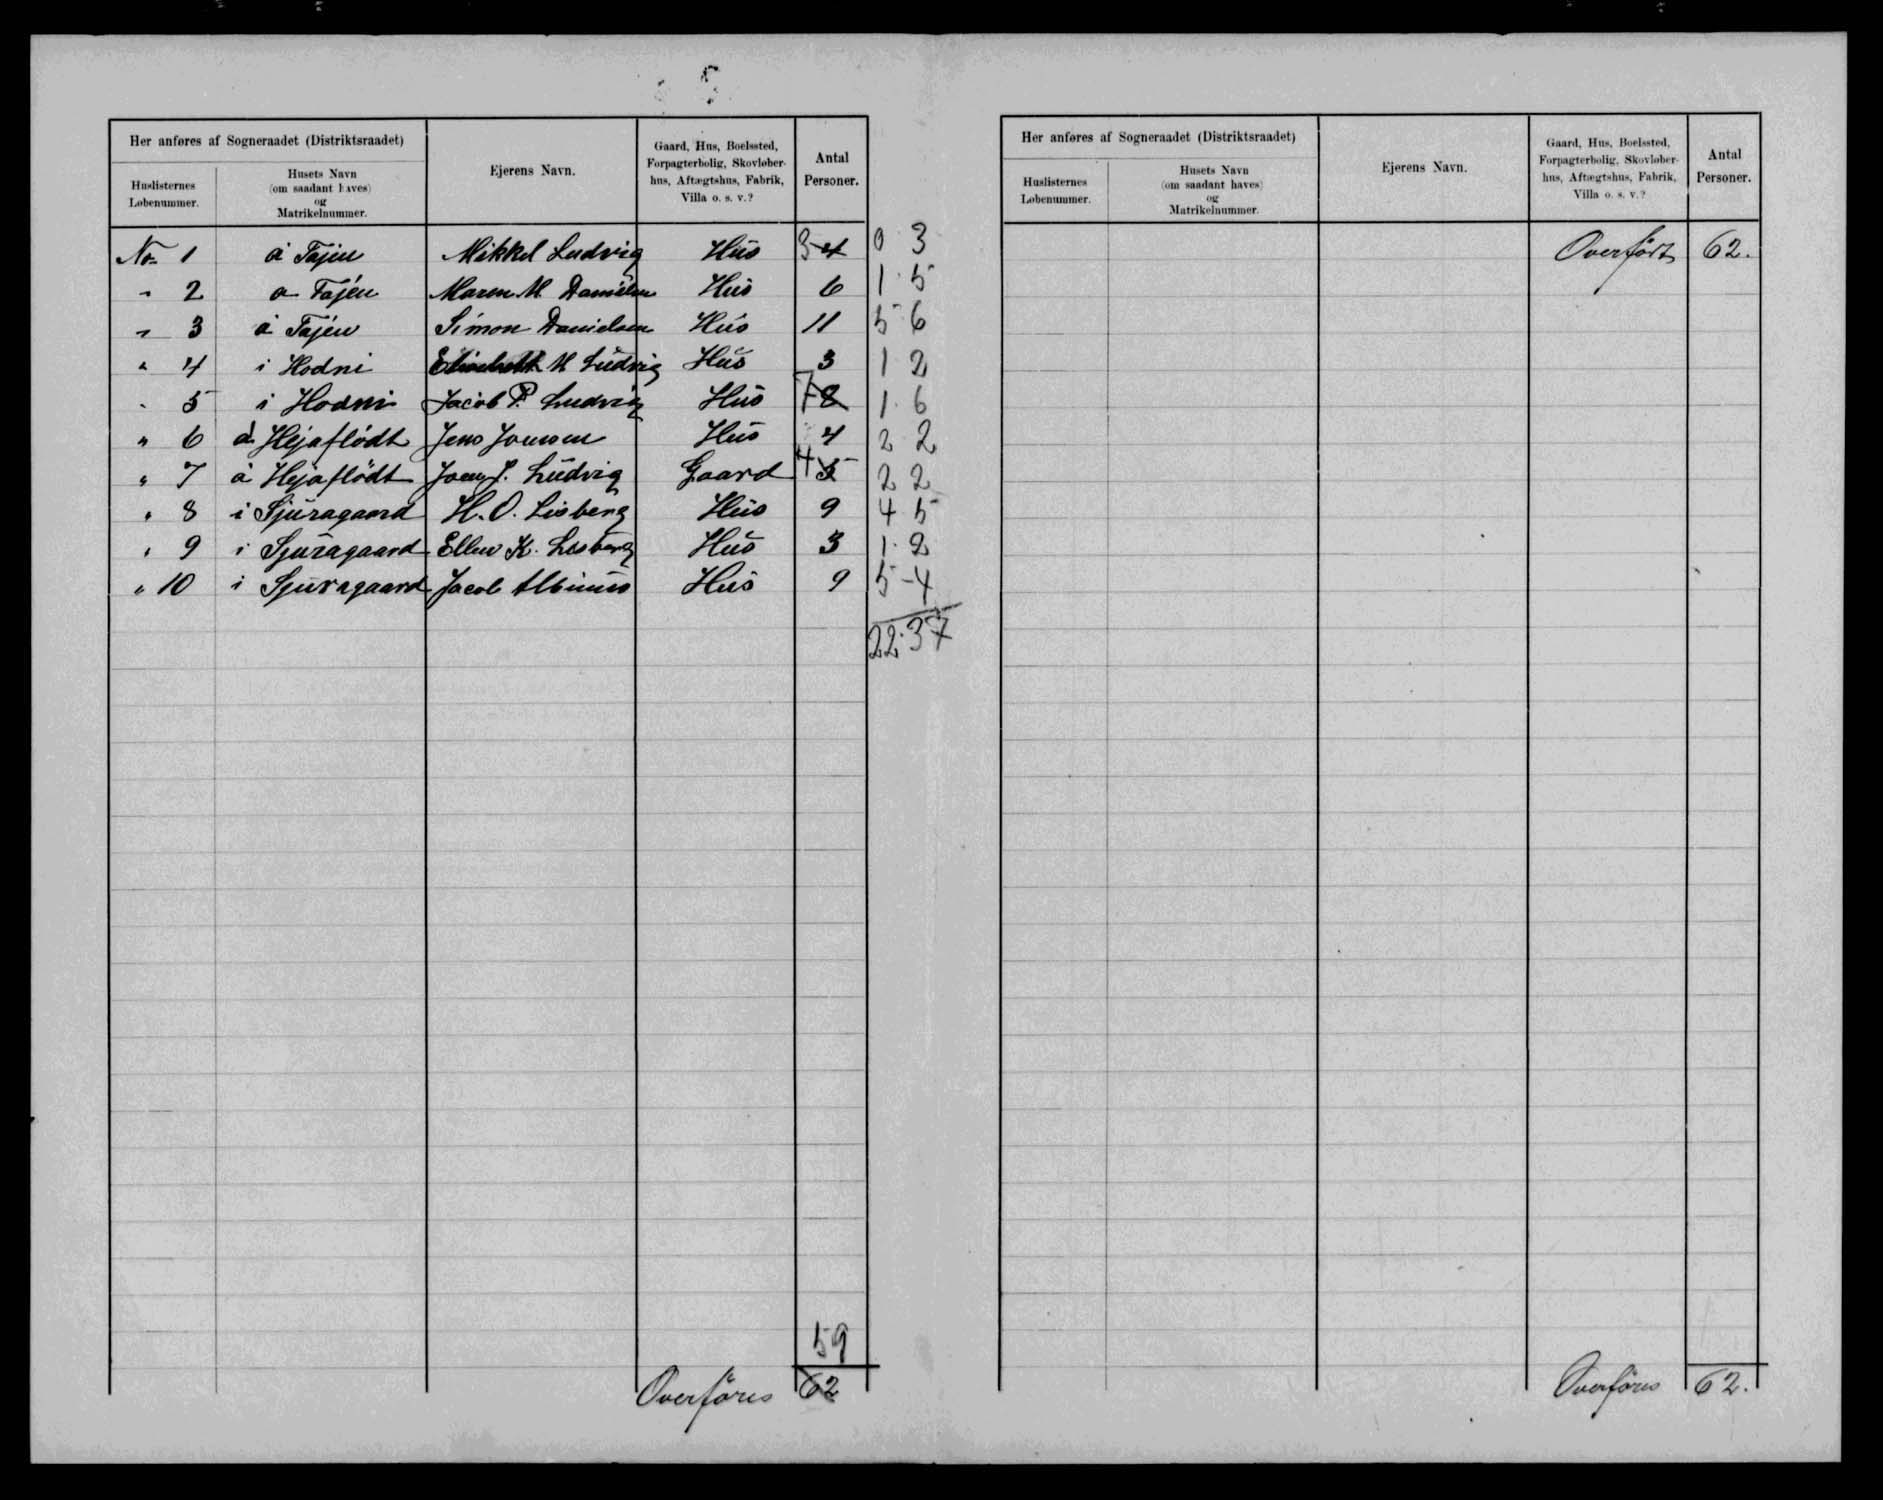 5
Her anføres af Sogneraadet (Distriktsraadet)
Huslisternes Løbenummer.
Husets Navn (om saadant haves) og Matrikelnummer.
Ejerens Navn.
Gaard, Hus, Boelssted, Forpagterbolig, Skovløberhus, Aftægtshus, Fabrik, Villa o. s. v.?
Antal Personer.
No 1 á Tajèn Mikkel Ludvig Hus 3 4 0 3
" 2 a Tajèn Maren M Danielsen Hus 6 1 5
" 3 á Tajèn Simon Danielsen Hus 11 5 6
" 4 i Hodni Elisabeth M Ludvig Hus 3 1 2
" 5 i Hodni Jacob P. Ludvig Hus 7 8 1 6
" 6 á Hejaflødt Jens Hus 4 2 2
" 7 á Hejaflødt Ludvig Gaard 4 5 2 2
" 8 i Sjúragaard H. O. Lisberg Hus 9 4 5
" 9 i Sjúragaard Ellen K. Lisberg Hus 3 1 2
" 10 i Sjúragaard Jacob Albinus Hus 9 5 - 4
22 37
59
Overføres 62
Her anføres af Sogneraadet (Distriktsraadet)
Huslisternes Løbenummer.
Husets Navn (om saadant haves) og Matrikelnummer.
Ejerens Navn.
Gaard, Hus, Boelssted, Forpagterbolig, Skovløberhus, Aftægtshus, Fabrik, Villa o. s. v.?
Antal Personer.
Overført 62.
Overføres 62.